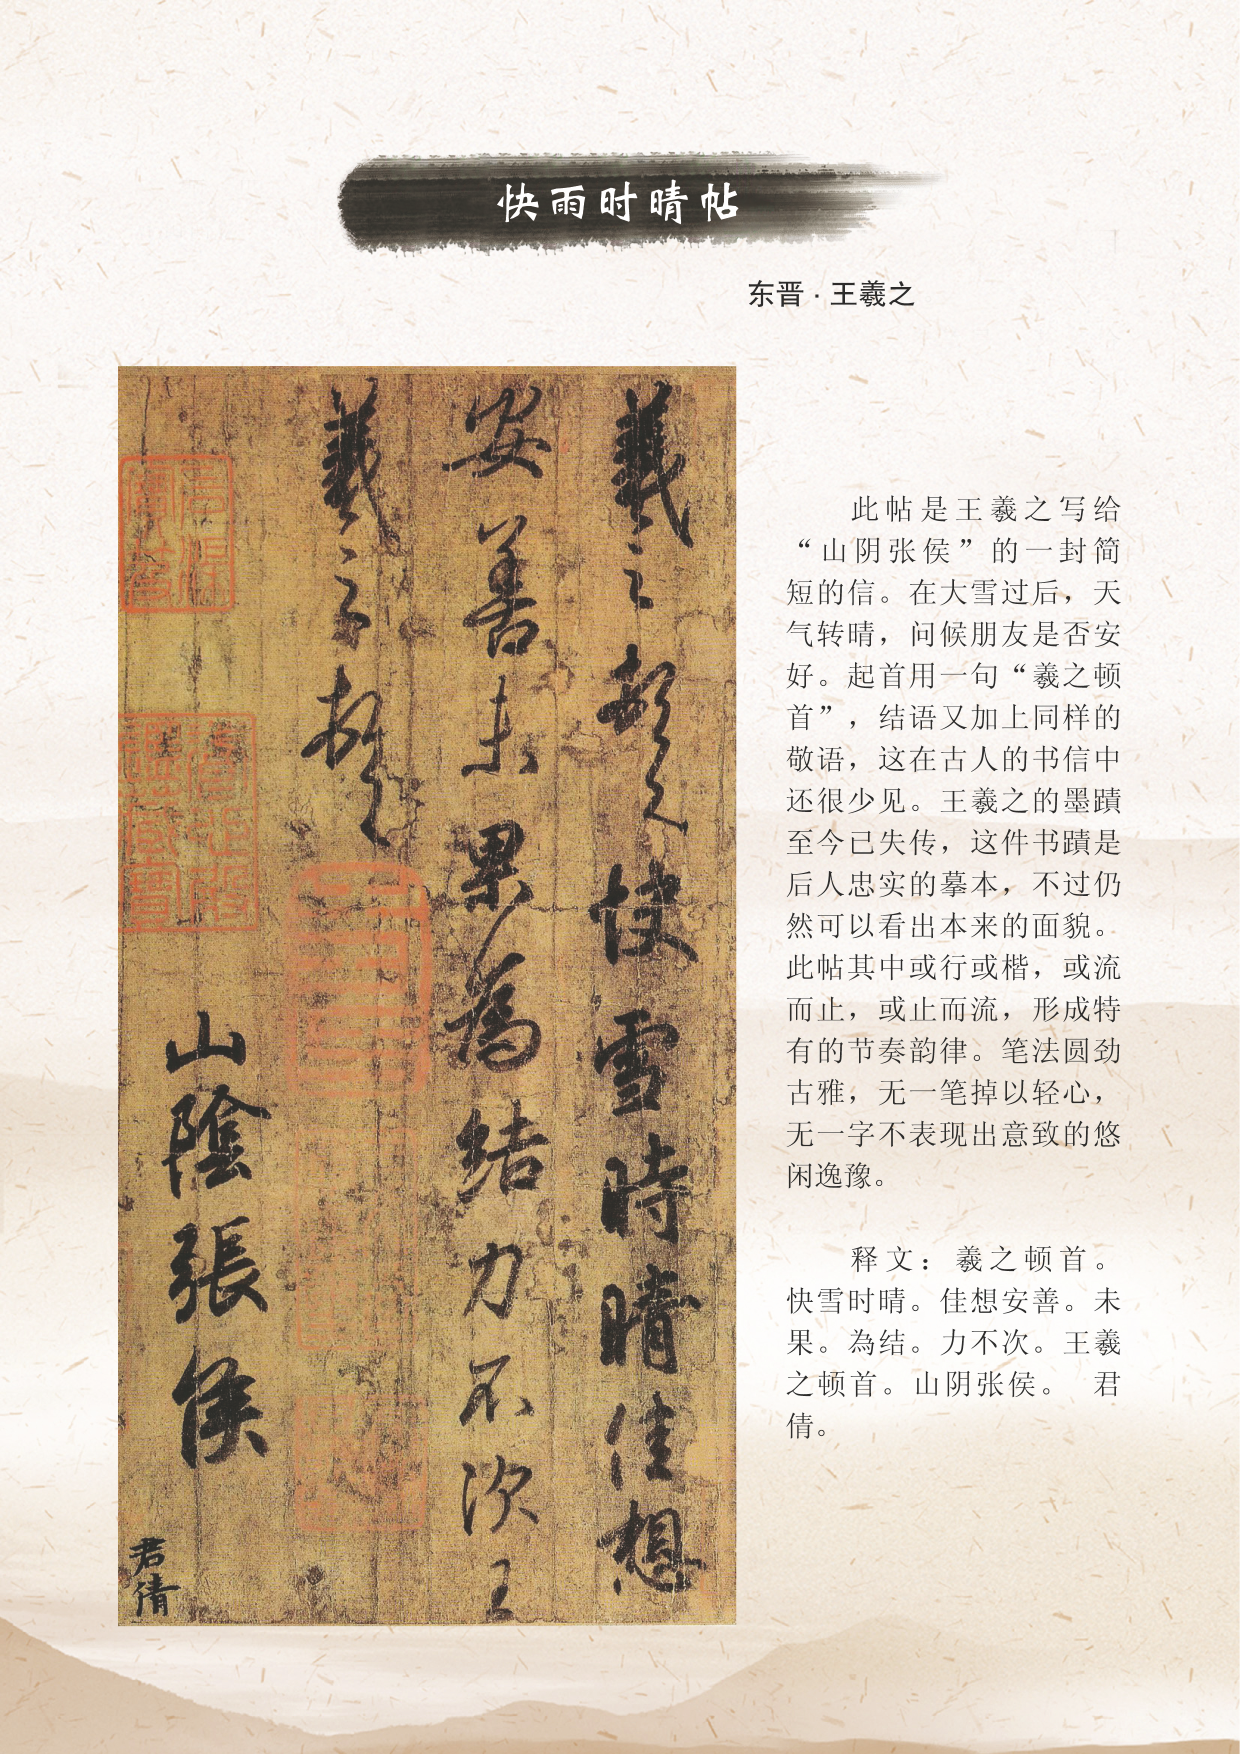 快雨时晴帖
东晋·王羲之
羲之顿首快雪時晴佳想
安善未果為结力不次王
羲之顿首
山陰張侯
君倩
此帖是王羲之写给
“山阴张侯”的一封简
短的信。在大雪过后，天
气转晴，问候朋友是否安
好。起首用一句“羲之顿
首”，结语又加上同样的
敬语，这在古人的书信中
还很少见。王羲之的墨蹟
至今已失传，这件书蹟是
后人忠实的摹本，不过仍
然可以看出本来的面貌。
此帖其中或行或楷，或流
而止，或止而流，形成特
有的节奏韵律。笔法圆劲
古雅，无一笔掉以轻心，
无一字不表现出意致的悠
闲逸豫。
释文：羲之顿首。
快雪时晴。佳想安善。未
果。為结。力不次。王羲
之顿首。山阴张侯。 君
倩。